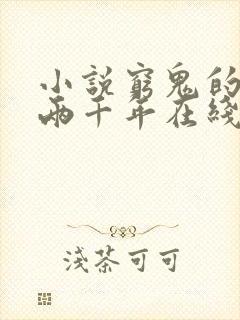 小說窮鬼的
兩千年在綫
淺茶可可